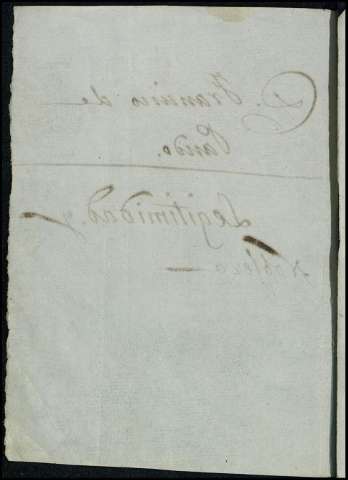 D. Francisco de
Pando.
Legitimidad y
Nobleza